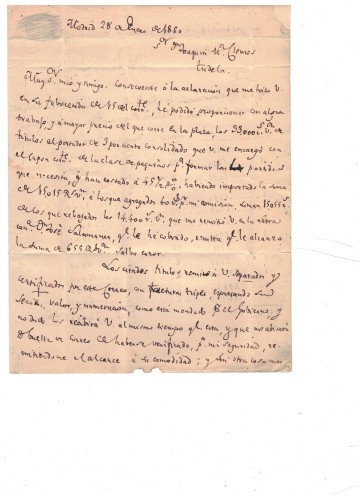 Madrid 28 de Enero de 1860
Sor Dn Joaquin Ma Cismos
Tudela
Muy Sr mio y amigo. Consecuente á la aclaracion que me hizo V.
en su favorecida de 15 del cote, he podido proporcionar con algun
trabajo, y á mayor precio del que corre en la plaza, los 33,000 rs. Vn de
titulos al portador de 3 por ciento consolidado que V. me encargó con
el cupon cote de la clase de pequeños pa formar las 4 partidas
que necesita, y han costado á 45½ p%, habiendo importado la suma
de 15,015 Rs Vn, á los que agregados 40 rs. por mi comision, suman 15,055 rs.
de los que rebajados los 14,400 rs. Vn que me remitió V. en la letra
con Dn José Salamanca, qe he cobrado, resulta qe le alcanzo
la suma de 655 Rs Vn Salbo error.
Los citados titulos remito á V. separados y
certificados por este Correo, con facturas triples expresando su
Serie, valor, y numeracion como está mandado por el Gobierno, y
no dudo los recibirá V. al mismo tiempo qe esta, y que me abisará
á buelta de correo de haberse verificado, pa mi seguridad, re-
mitiendome el alcance á su comodidad; y si otra cosa mas